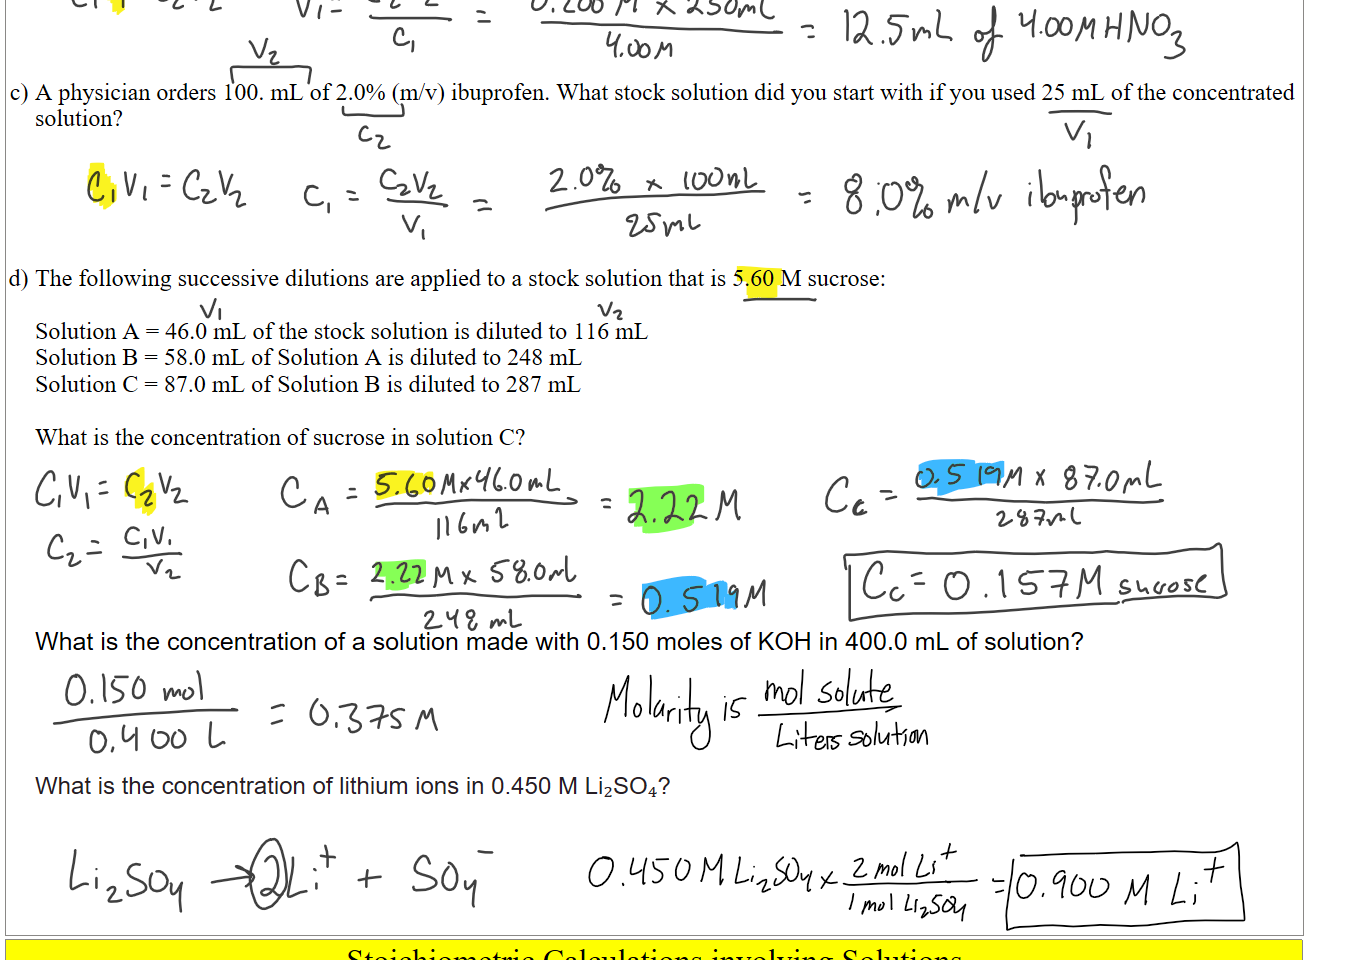 V₁ = = 0.200 M x 250mL / 4.00M = 12.5mL of 4.00M HNO₃
C₁
V₂
c) A physician orders 100. mL of 2.0% (m/v) ibuprofen. What stock solution did you start with if you used 25 mL of the concentrated
solution?
C₂ V₁
C₁V₁ = C₂V₂ C₁ = C₂V₂ / V₁ = 2.0% x 100mL / 25mL = 8.0% m/v ibuprofen
d) The following successive dilutions are applied to a stock solution that is 5.60 M sucrose:
V₁ V₂
Solution A = 46.0 mL of the stock solution is diluted to 116 mL
Solution B = 58.0 mL of Solution A is diluted to 248 mL
Solution C = 87.0 mL of Solution B is diluted to 287 mL
What is the concentration of sucrose in solution C?
C₁V₁ = C₂V₂ C_A = 5.60 M x 46.0 mL / 116mL = 2.22 M C_C = 0.519M x 87.0mL / 287mL
C₂ = C₁V₁ / V₂ C_B = 2.22 M x 58.0mL / 248 mL = 0.519M C_C = 0.157M sucrose
What is the concentration of a solution made with 0.150 moles of KOH in 400.0 mL of solution?
0.150 mol / 0.400 L = 0.375 M Molarity is mol solute / Liters solution
What is the concentration of lithium ions in 0.450 M Li₂SO₄?
Li₂SO₄ → 2Li⁺ + SO₄⁻ 0.450M Li₂SO₄ x 2 mol Li⁺ / 1 mol Li₂SO₄ = 0.900 M Li⁺
Stoichiometric Calculations involving Solutions